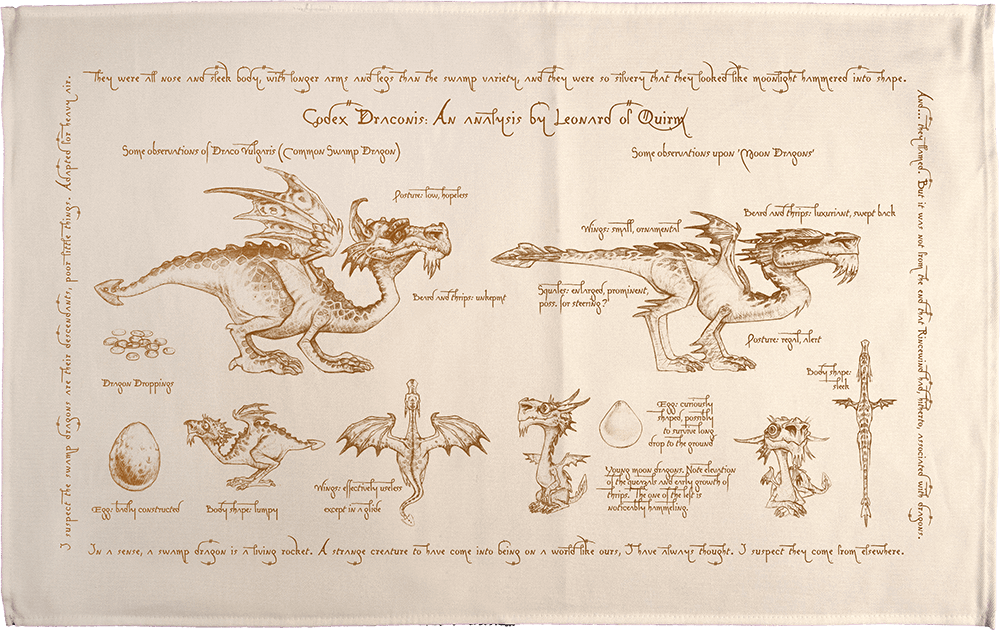 They were all nose and sleek body, with longer arms and legs than the swamp variety, and they were so silvery that they looked like moonlight hammered into shape.
And... they flamed. But it was not from the end that Rincewind had, hitherto, associated with dragons.
In a sense, a swamp dragon is a living rocket. A strange creature to have come into being on a world like ours, I have always thought. I suspect they come from elsewhere.
I suspect the swamp dragons are their descendants, poor little things. Adapted for heavy air.
Codex Draconis: An analysis by Leonard of Quirm
Some observations of Draco Vulgaris (Common Swamp Dragon)
Posture: low, hopeless
Beard and thrips: unkempt
Dragon Droppings
Egg: badly constructed
Body shape: lumpy
Wings: effectively useless
except in a glide
Some observations upon 'Moon Dragons'
Wings: small, ornamental
Beard and thrips: luxuriant, swept back
Squales: enlarged, prominent,
poss. for steering?
Posture: regal, alert
Body shape:
sleek
Egg: curiously
shaped, possibly
to survive long
drop to the ground
Young moon dragons. Note elevation
of the querzals and early growth of
thrips. The one of the left is
noticeably hammeling.